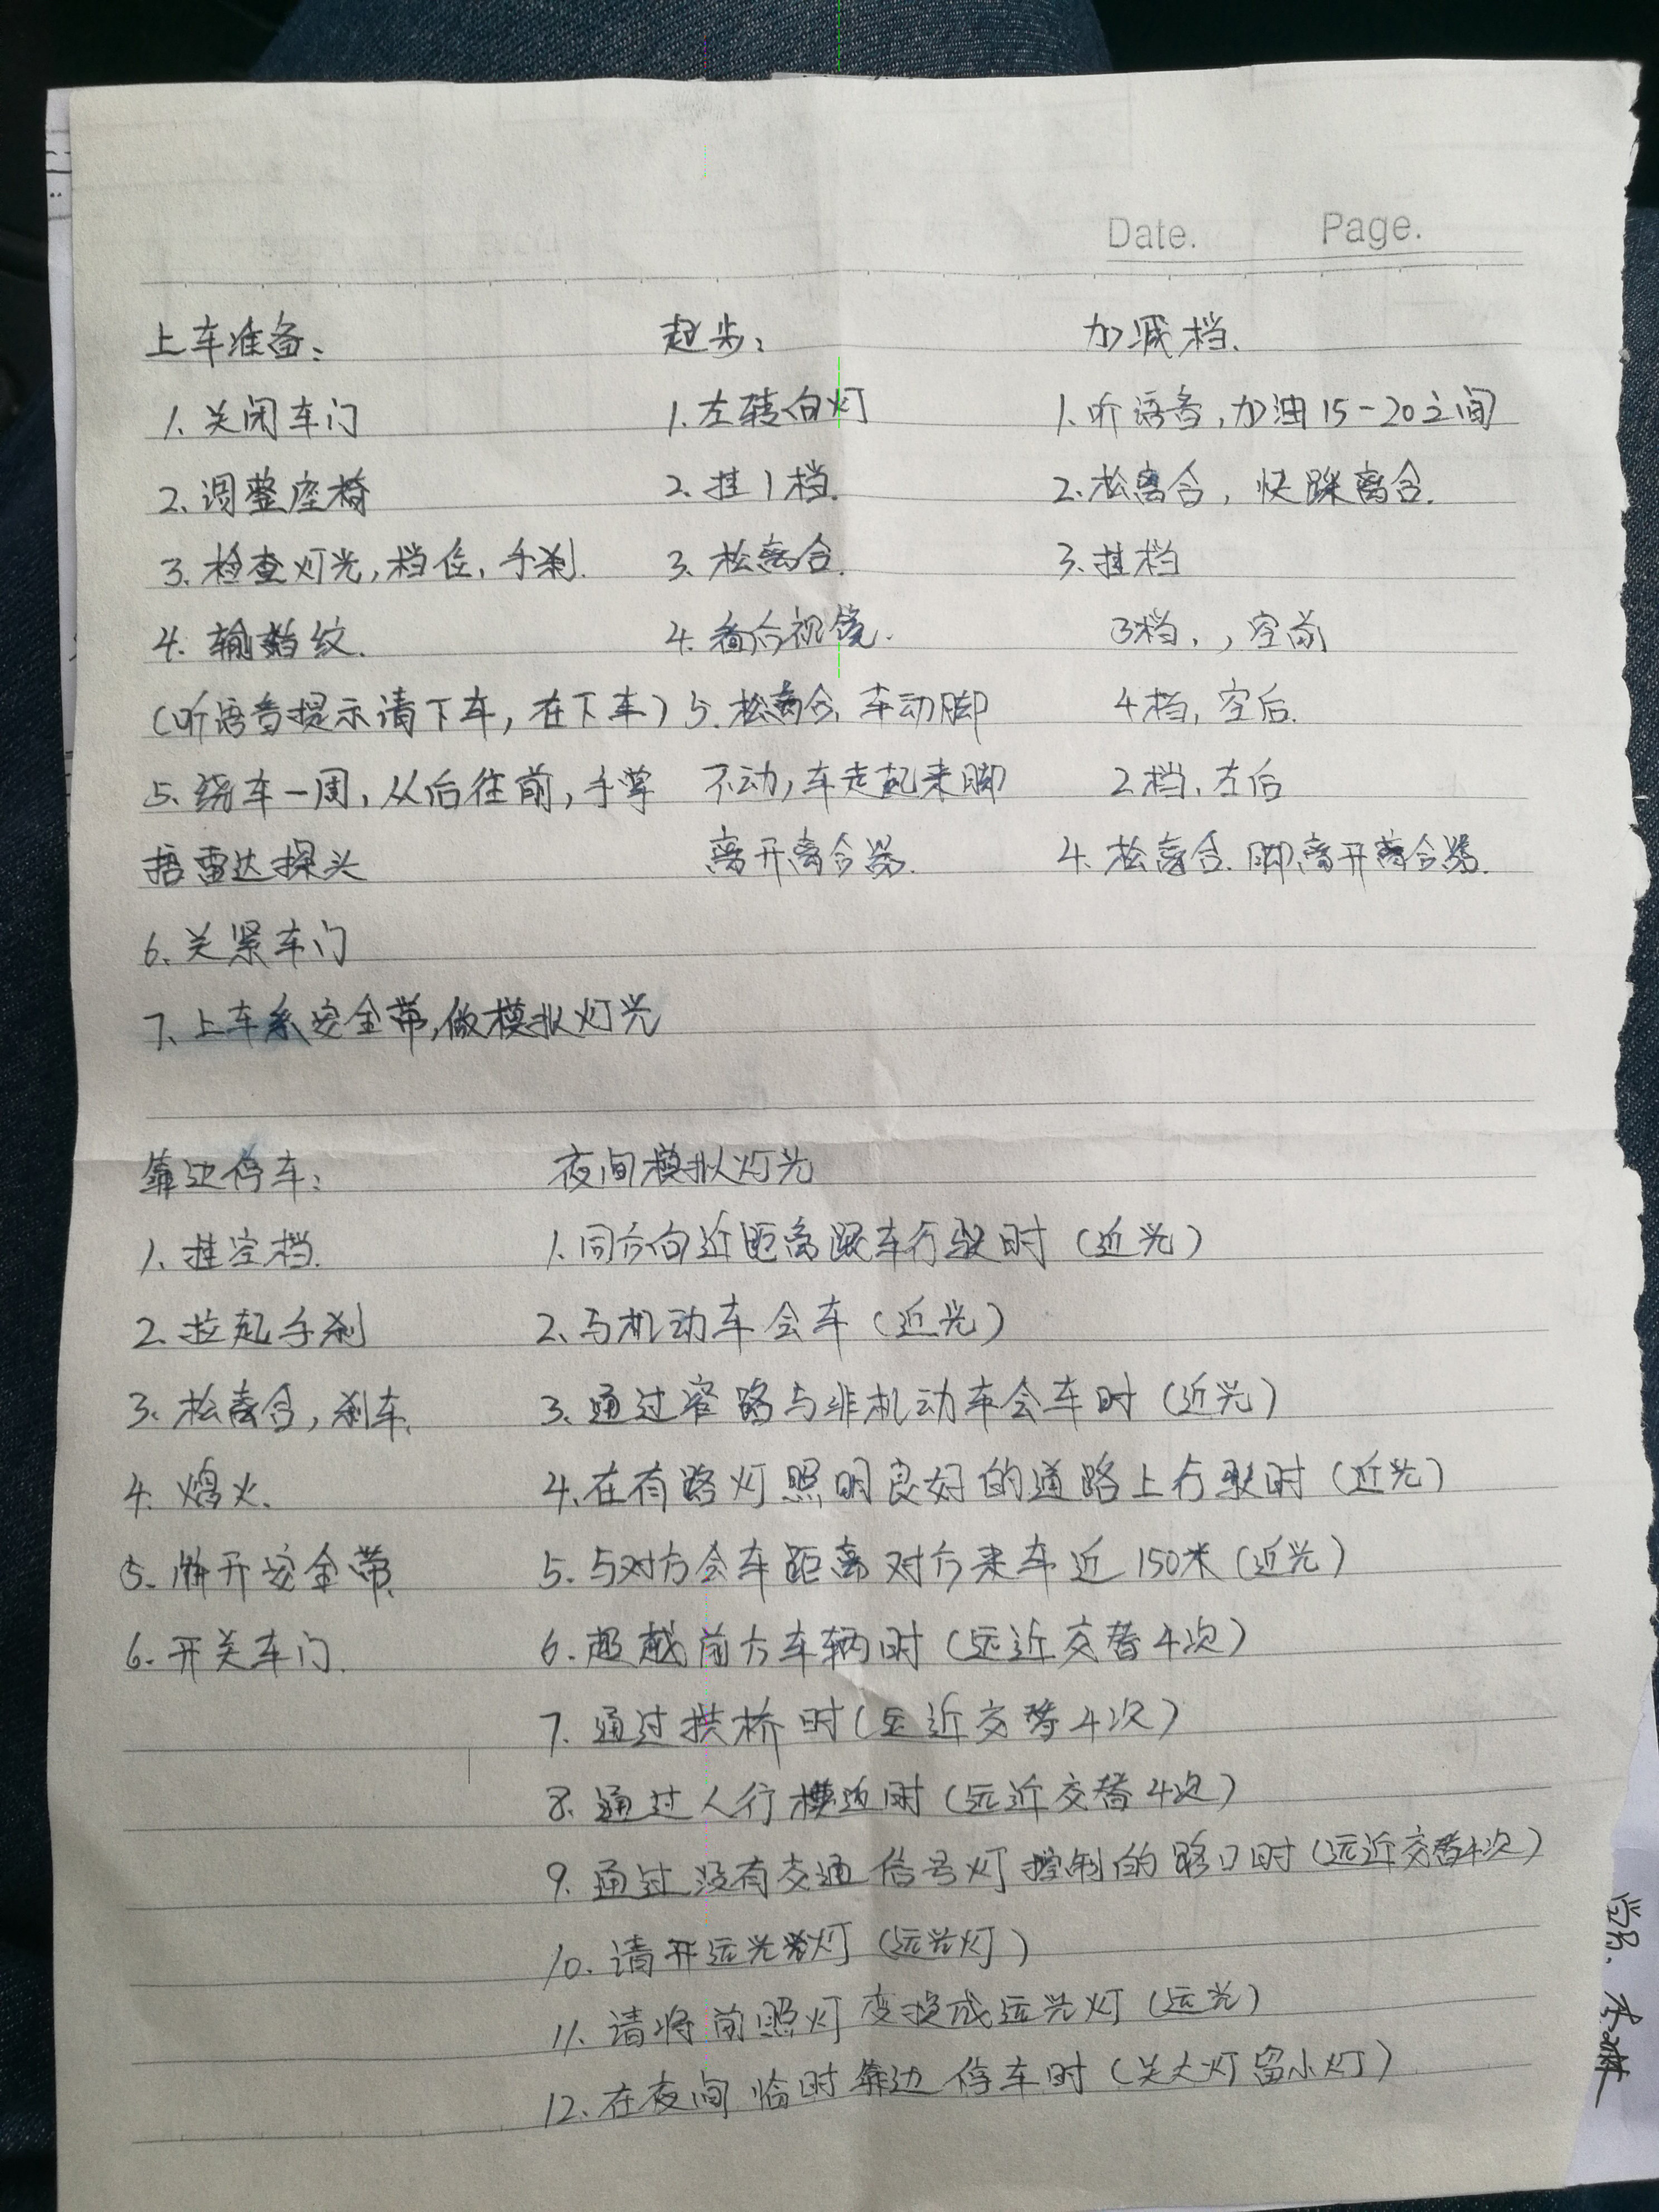 Date. Page.
上车准备：
1. 关闭车门
2. 调整座椅
3. 检查灯光，档位，手刹.
4. 输指纹.
（听语音提示请下车，在下车）
5. 绕车一周，从后往前，手掌
捂雷达探头
6. 关紧车门
7. 上车系安全带，做模拟灯光
起步：
1. 左转向灯
2. 挂1档.
3. 松离合.
4. 看后视镜.
5. 松离合，车动脚
不动，车走起来脚
离开离合器.
加减档.
1. 听语音，加油15-20之间
2. 松离合，快踩离合.
3. 挂档
3档，，空前
4档，空后.
2档，左后
4. 松离合.脚离开离合器.
靠边停车：
1. 挂空档.
2. 拉起手刹
3. 松离合，刹车.
4. 熄火.
5. 解开安全带.
6. 开关车门.
夜间模拟灯光
1. 同方向近距离跟车行驶时（近光）
2. 与机动车会车（近光）
3. 通过窄路与非机动车会车时（近光）
4. 在有路灯照明良好的道路上行驶时（近光）
5. 与对方会车距离对方来车近150米（近光）
6. 超越前方车辆时（远近交替4次）
7. 通过拱桥时（远近交替4次）
8. 通过人行横道时（远近交替4次）
9. 通过没有交通信号灯控制的路口时（远近交替4次）
10. 请开远光灯（远光灯）
11. 请将前照灯变换成远光灯（远光）
12. 在夜间临时靠边停车时（关大灯留小灯）